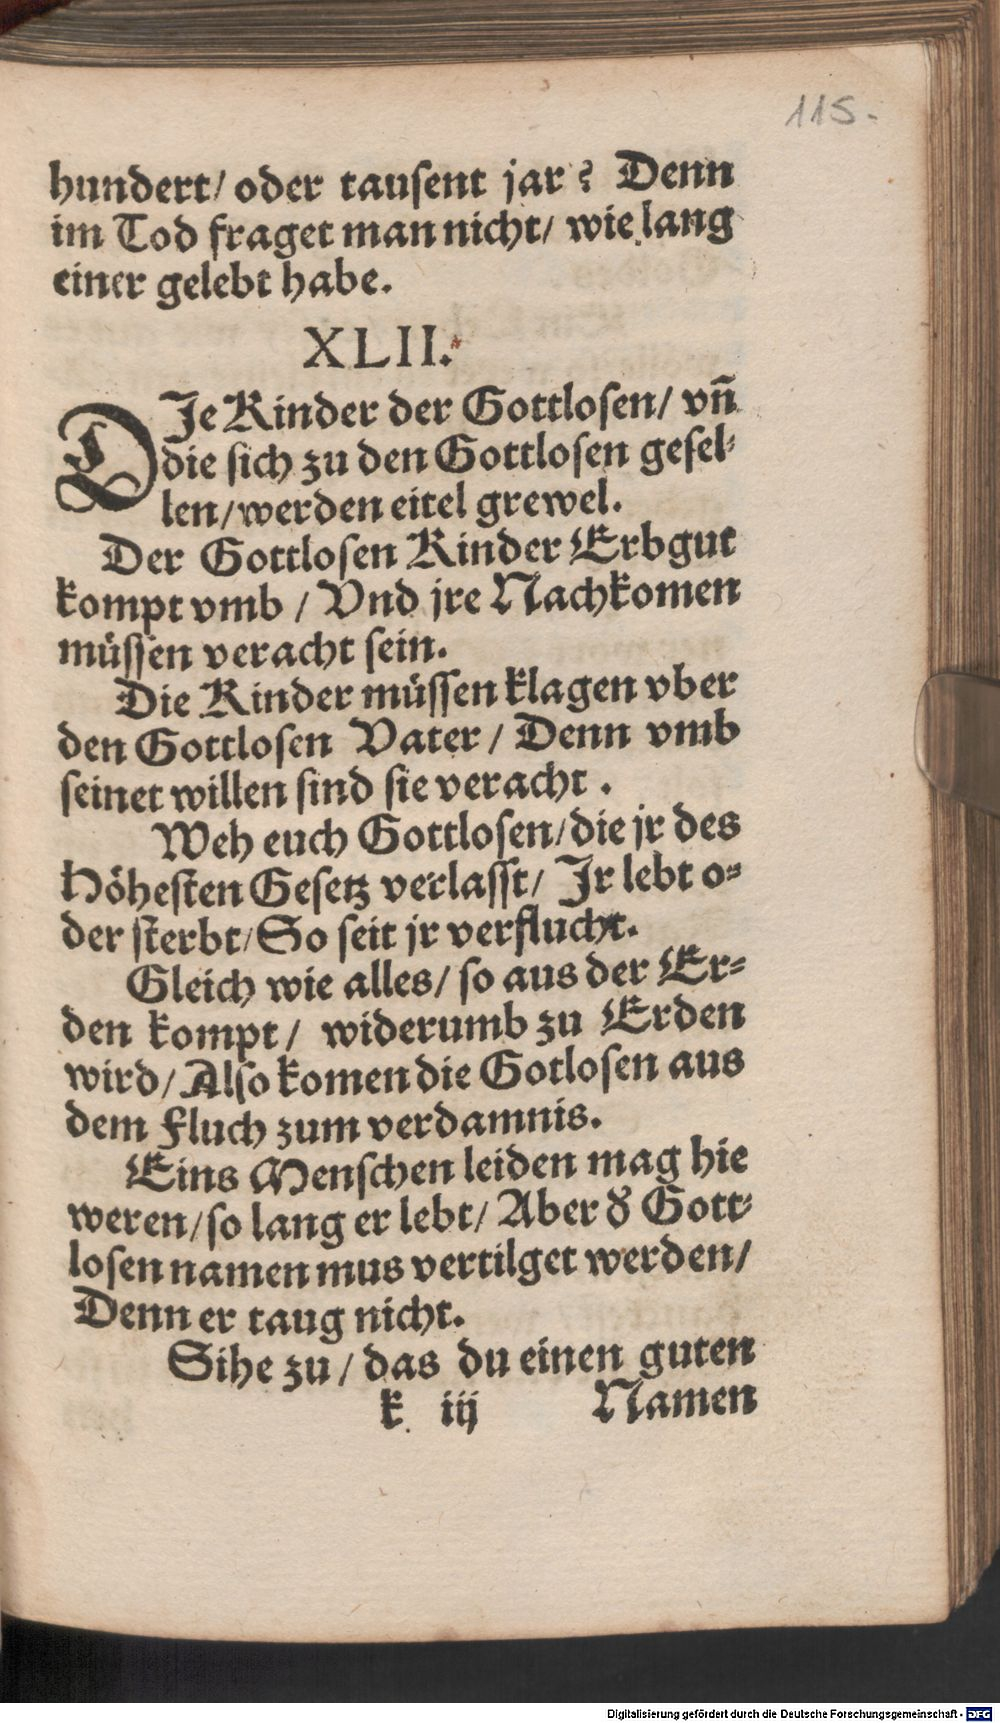 115.
hundert/ oder tausent jar? Denn
im Tod fraget man nicht/ wie lang
einer gelebt habe.
XLII.
DIe Kinder der Gottlosen/ vñ
die sich zu den Gottlosen gesel-
len/werden eitel grewel.
Der Gottlosen Kinder Erbgut
kompt vmb / Vnd jre Nachkomen
müssen veracht sein.
Die Kinder müssen klagen vber
den Gottlosen Vater / Denn vmb
seinet willen sind sie veracht .
Weh euch Gottlosen/die jr des
Höhesten Gesetz verlasst/ Jr lebt o=
der sterbt/So seit jr verflucht.
Gleich wie alles/ so aus der Er=
den kompt/ widerumb zu Erden
wird/Also komen die Gotlosen aus
dem Fluch zum verdamnis.
Eins Menschen leiden mag hie
weren/so lang er lebt/ Aber d' Gott-
losen namen mus vertilget werden/
Denn er taug nicht.
Sihe zu/ das du einen guten
k iij Namen
Digitalisierung gefördert durch die Deutsche Forschungsgemeinschaft - DFG